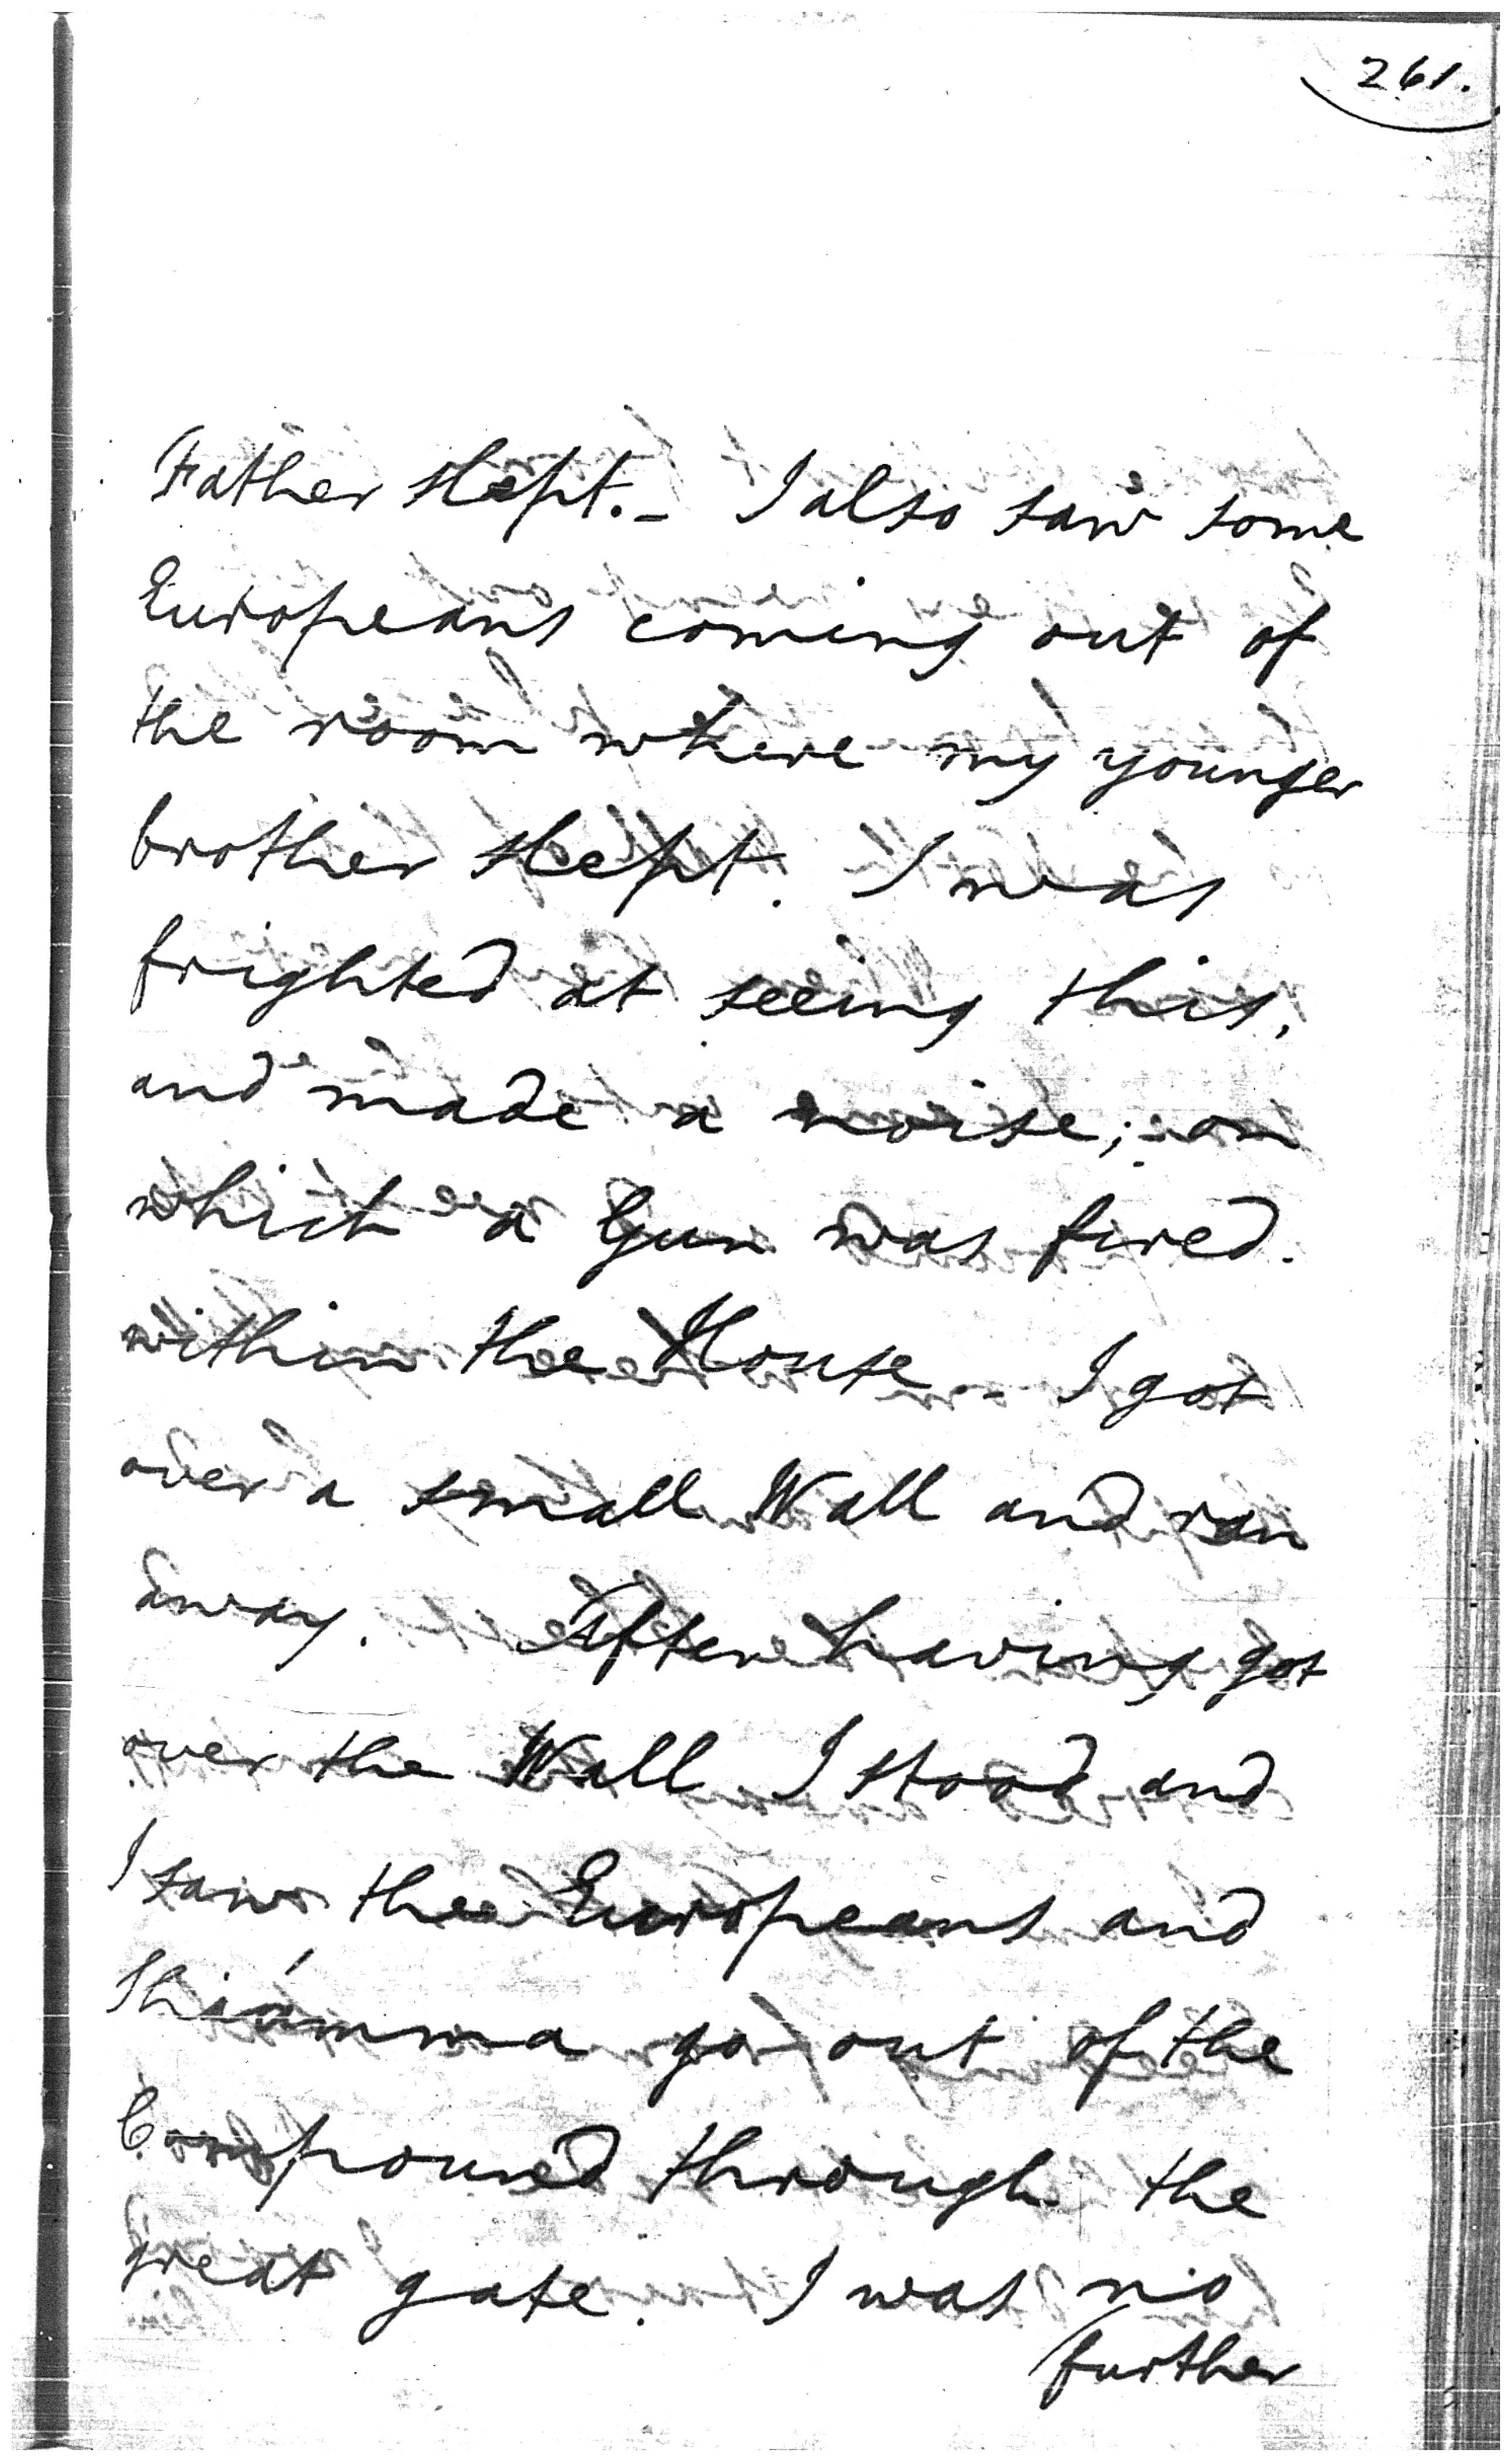 261.
Father slept. _ I also saw some
Europeans coming out of
the room where my younger
brother slept. I was
frighted at seeing this,
and made a noise; on
which a Gun was fired.
within the House _ I got
over a small Wall and ran
away. After having got
over the Wall I stood and
I saw the Europeans and
Shiámma go out of the
Compound through the
great gate. I was no
further